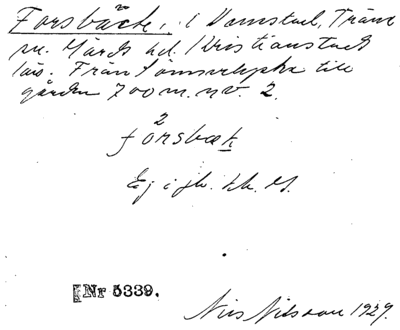 Forsbäck, i Vamstad, Träne
sn. Gärds hd. Kristianstads
län. Från till
gården 700 m. nv. 2.
2
forsbæk
Ej i jb. M.
[Nr 5339.
Nils Nilsson 1929.